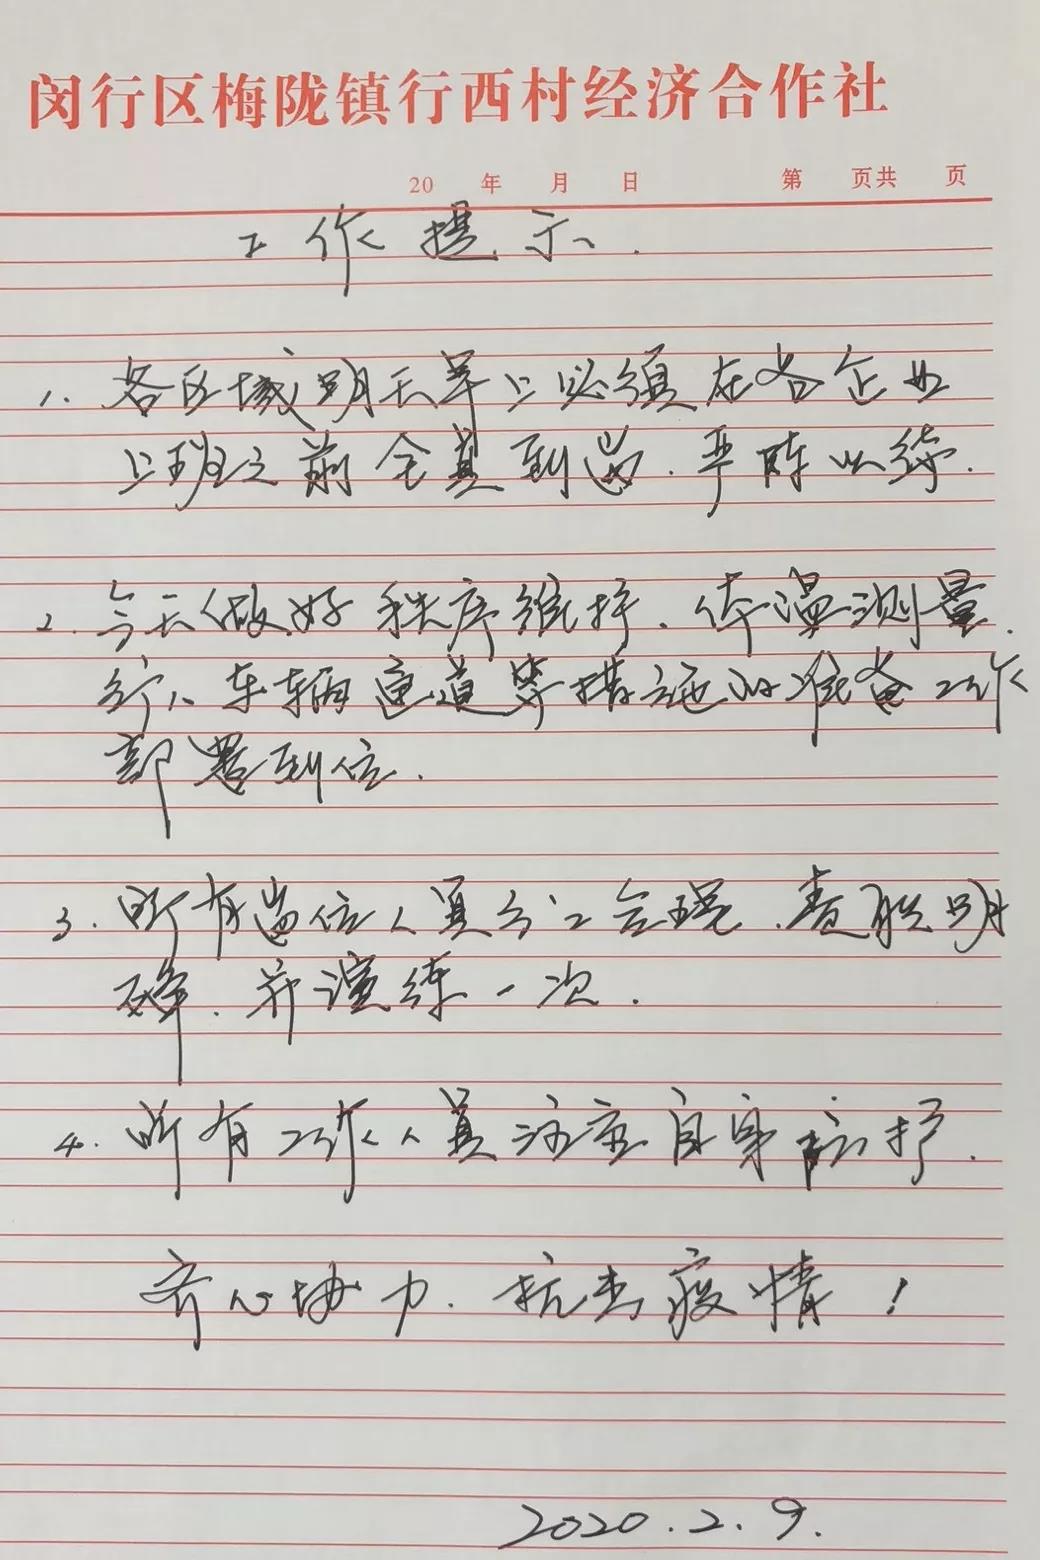 闵行区梅陇镇行西村经济合作社
20 年 月 日 第 页共 页
工作提示.
1. 各区域明天早上必须在各企业
上班之前全员到岗.严阵以待.
2. 今天做好秩序维持、体温测量.
行人车辆通道等措施的准备工作
部署到位.
3. 所有岗位人员分工合理.责职明
确.并演练一次.
4. 所有工作人员注意自身防护.
齐心协力.抗击疫情!
2020.2.9.